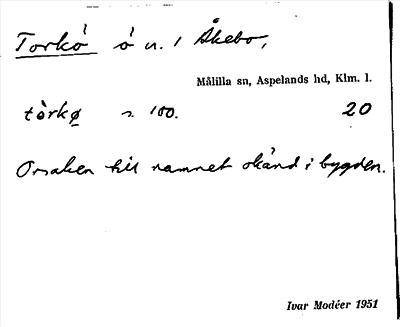 Torkö ö n. i Åkebo,
Målilla sn, Aspelands hd, Klm. l.
tòrkø s. 100. 20
Orsaken till namnet okänd i bygden.
Ivar Modéer 1951